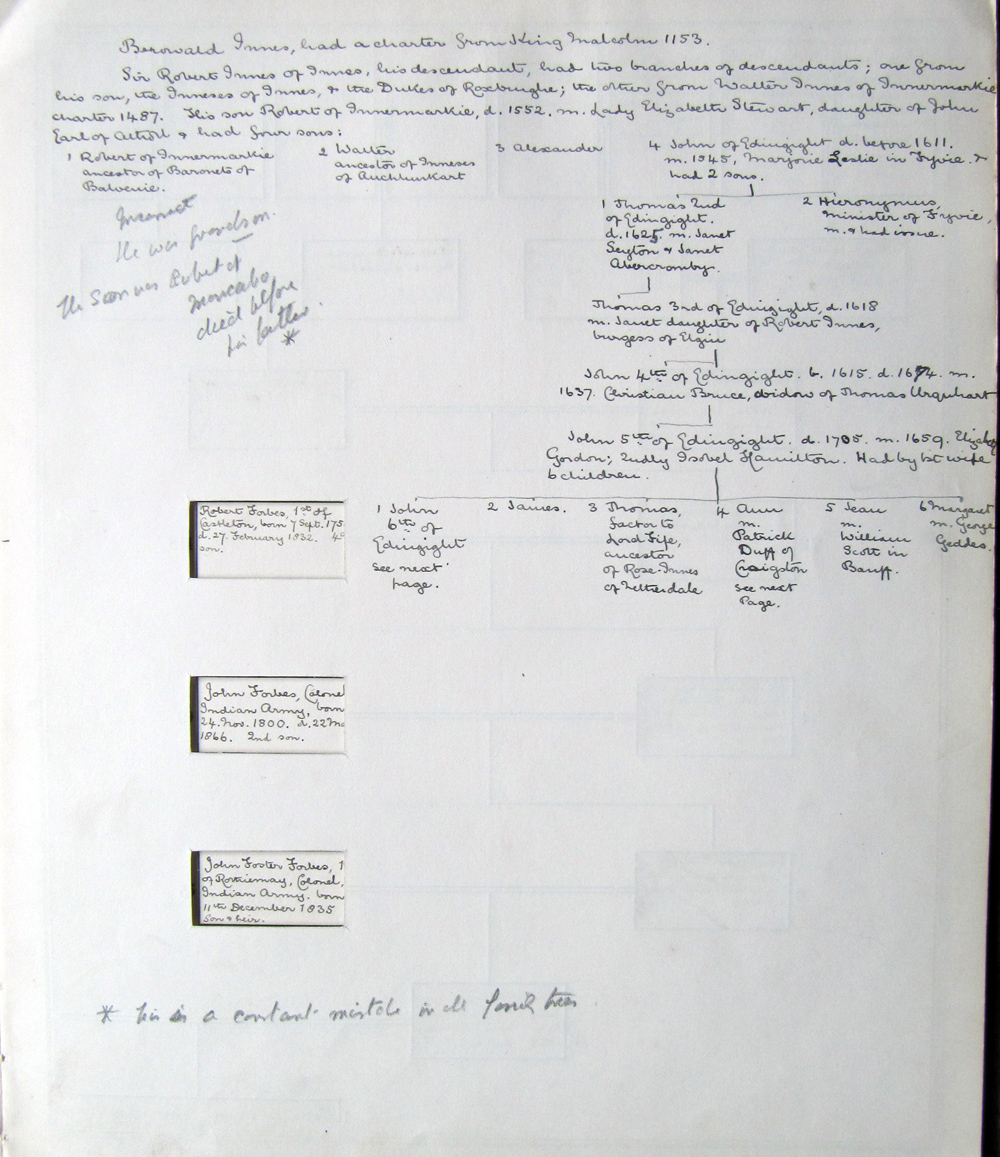 Berowald Innes, had a charter from King Malcolm 1153.
Sir Robert Innes of Innes, his descendant, had two branches of descendants; one from
his son, the Inneses of Innes, & the Dukes of Roxburghe; the other from Walter Innes of Innermarkie
charter 1487. His son Robert of Innermarkie, d. 1552. m. Lady Elizabeth Stewart, daughter of John
Earl of Atholl & had four sons:
1 Robert of Innermarkie
ancestor of Baronets of
Balvenie.
2 Walter
ancestor of Inneses
of Auchlunkart
3 Alexander
4 John of Edingight d. before 1611.
m. 1545, Marjorie Leslie in Fyvie &
had 2 sons.
Incorrect
He was grandson.
The Son was Robert of
died before
his father
*
1 Thomas 2nd
of Edingight.
d. 1625. m. Janet
Seyton & Janet
Abercromby.
2 Hieronymus,
minister of Fyvie,
m. & had issue.
Thomas 3rd of Edingight, d. 1618
m. Janet daughter of Robert Innes,
burgess of Elgin
John 4th of Edingight. b. 1615. d. 1674. m.
1637. Christian Bruce, widow of Thomas Urquhart
John 5th of Edingight. d. 1705. m. 1659. Elizabeth
Gordon; 2ndly Isobel Hamilton. Had by 1st wife
6 children.
1 John
6th of
Edingight
see next
page.
2 James.
3 Thomas,
factor to
Lord Fife,
ancestor
of Rose-Innes
of Netherdale
4 Ann
m.
Patrick
Duff of
Craigston
see next
Page.
5 Jean
m.
William
Scott in
Banff.
6 Margaret
m. George
Geddes.
Robert Forbes, 1st of
Castleton, born 7 Sept. 175
d. 27. February 1832. 4th
son.
John Forbes, Colonel
Indian Army, born
24. Nov. 1800. d. 22 Ma
1866. 2nd son.
John Foster Forbes, 1
of Rothiemay, Colonel,
Indian Army. born
11th December 1835
Son & heir.
* This is a constant mistake in all family trees